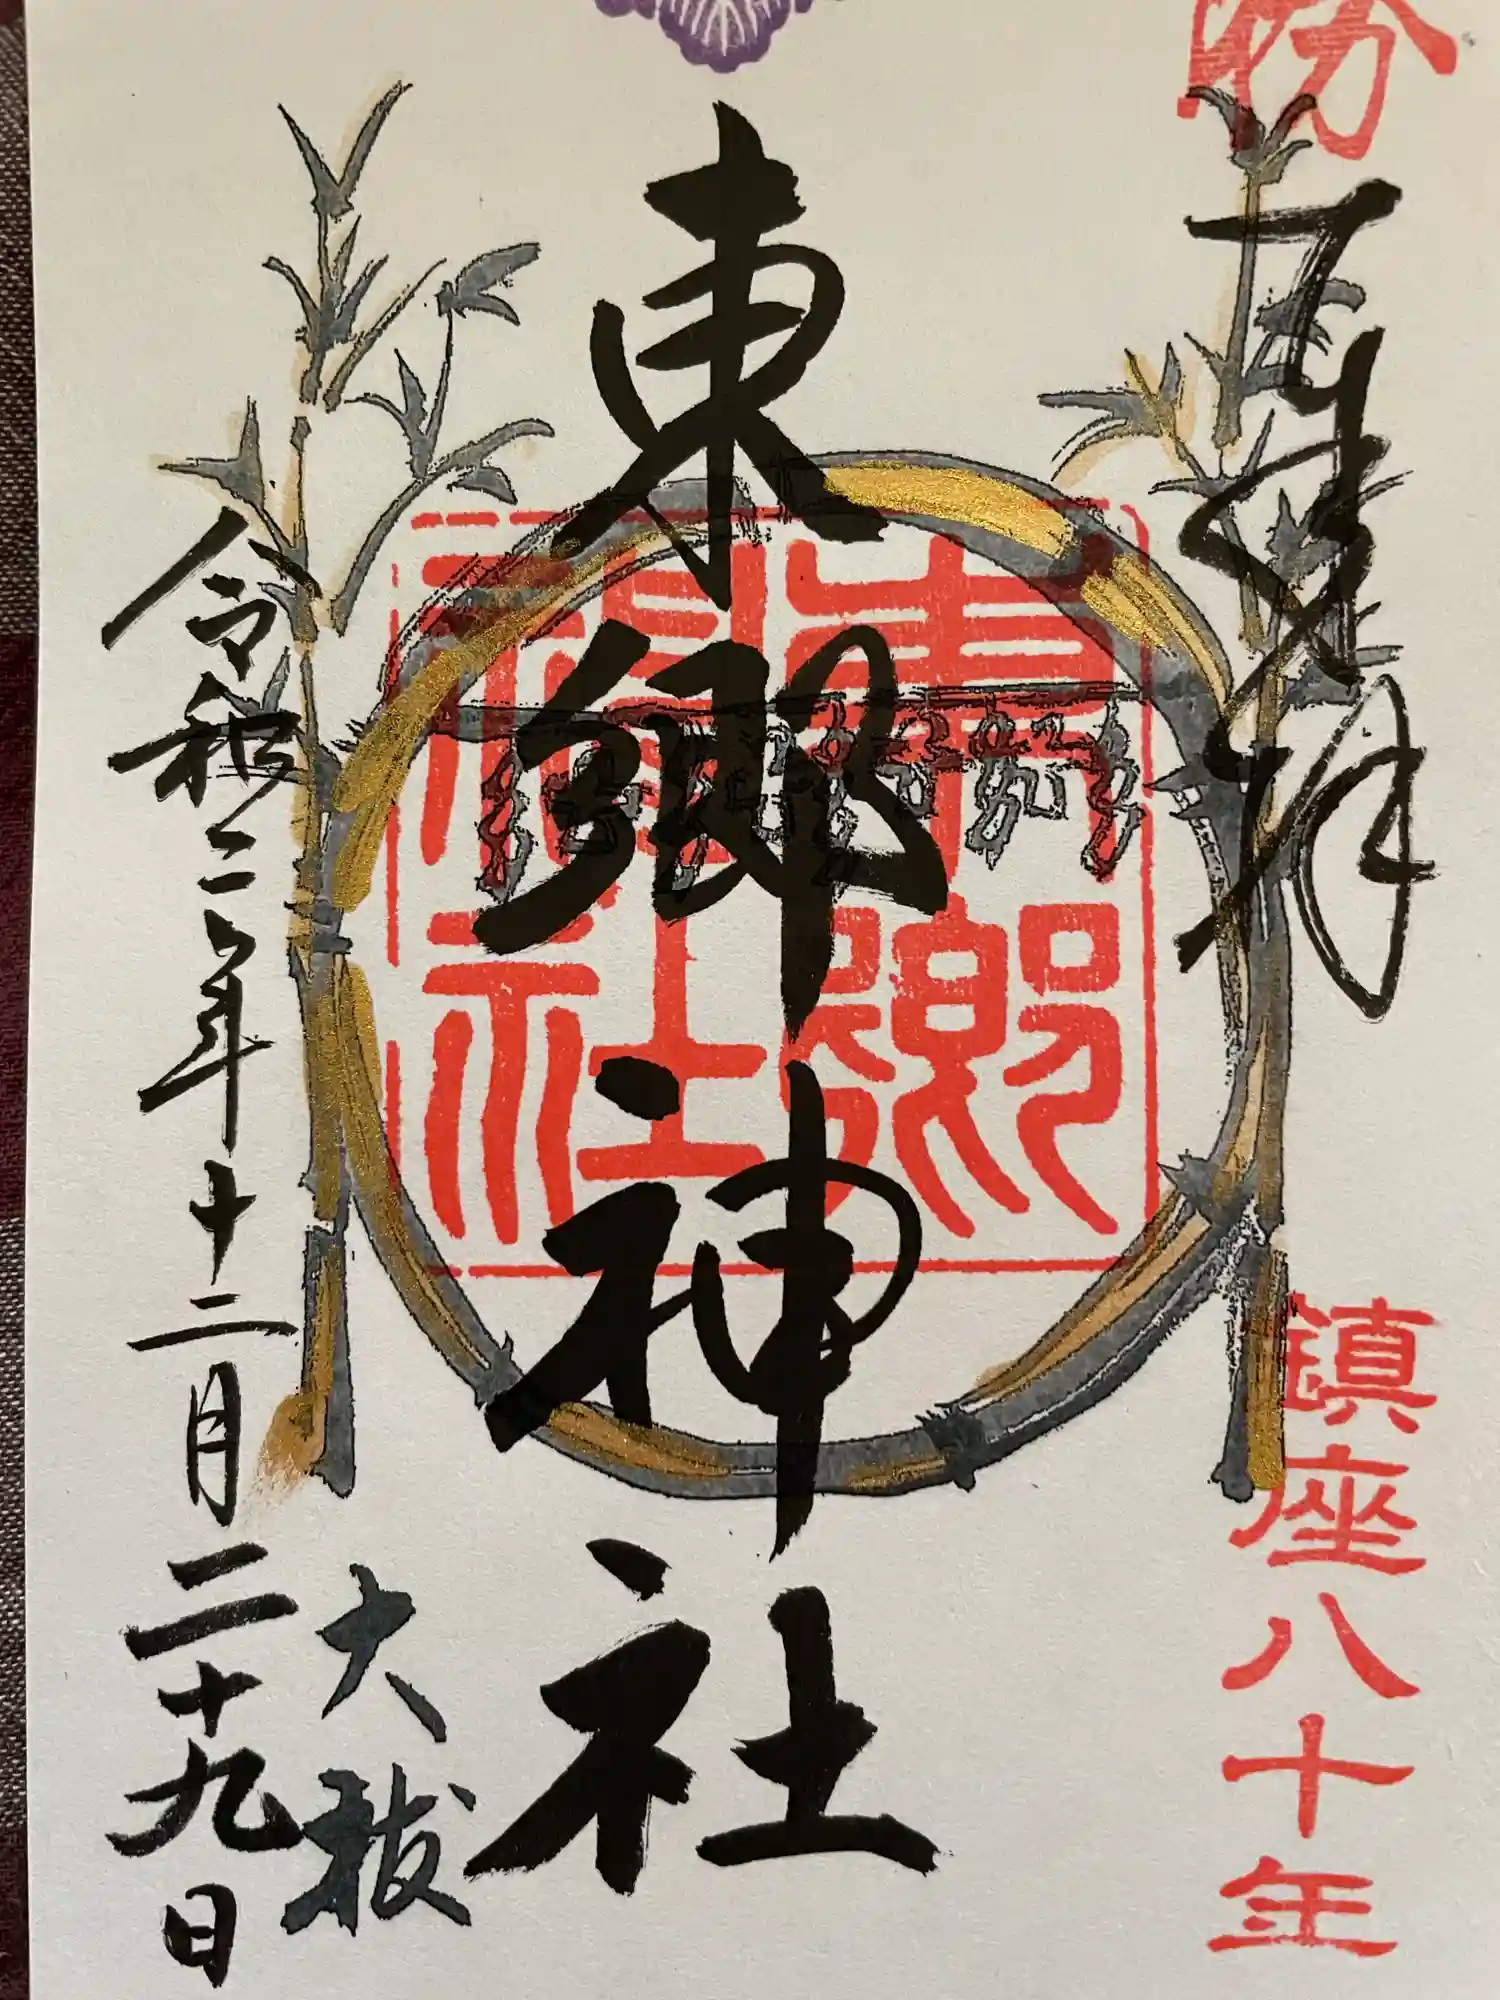 勝
奉拝
鎮座八十年
東郷神社
東郷
神社
大祓
令和二年十二月二十九日